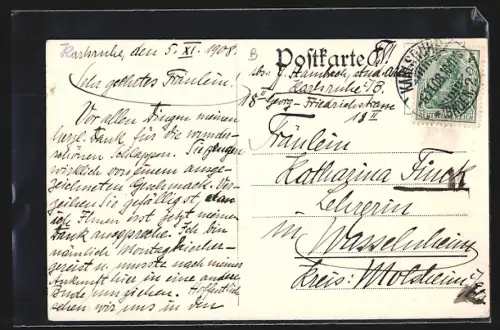 Karlsruhe, den 5. XI. 1908.
Sehr geehrtes Fräulein!
Vor allen Dingen meinen
herzl. Dank für die wunder-
schönen Schlappen. Sie zeugen
wirklich von einem ausge-
zeichneten Geschmack. Ver-
zeihen Sie gefälligst, dass
ich Ihnen erst jetzt meinen
Dank ausspreche. Ich bin
nämlich Montag hierher-
gereist u. musste nach meiner
Ankunft hier in eine andere
Bude umziehen. Hoffentlich
sehen wir uns in den
B
Postkarte
Abs. G. Stambach, stud.
Karlsruhe i/B.
18 II Georg-Friedrichstrasse
18 II
Fräulein
Katharina Finck
Lehrerin
in Wasselnheim
Kreis: Molsheim i/